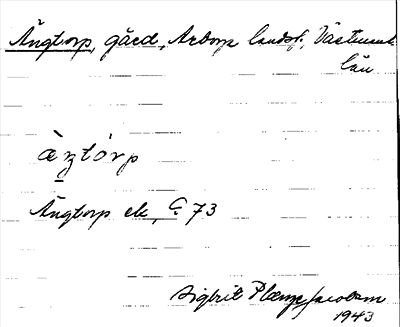 Ängtorp, gård, Arboga landsf., Västmanl.
län.
àṉtórp
Ängtorp ek, C 73
Sigbrit Plænge Jacobson
1943